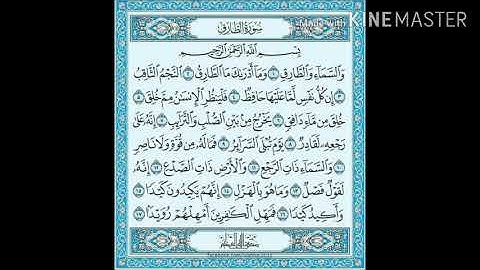 Made with
KINEMASTER
سُورَةُ الطَّارِقِ
بِسْمِ اللَّهِ الرَّحْمَٰنِ الرَّحِيمِ
وَالسَّمَاءِ وَالطَّارِقِ ١ وَمَا أَدْرَاكَ مَا الطَّارِقُ ٢ النَّجْمُ الثَّاقِبُ
٣ إِن كُلُّ نَفْسٍ لَّمَّا عَلَيْهَا حَافِظٌ ٤ فَلْيَنظُرِ الْإِنسَانُ مِمَّ خُلِقَ ٥
خُلِقَ مِن مَّاءٍ دَافِقٍ ٦ يَخْرُجُ مِن بَيْنِ الصُّلْبِ وَالتَّرَائِبِ ٧ إِنَّهُ عَلَىٰ
رَجْعِهِ لَقَادِرٌ ٨ يَوْمَ تُبْلَى السَّرَائِرُ ٩ فَمَا لَهُ مِن قُوَّةٍ وَلَا نَاصِرٍ
١٠ وَالسَّمَاءِ ذَاتِ الرَّجْعِ ١١ وَالْأَرْضِ ذَاتِ الصَّدْعِ ١٢ إِنَّهُ
لَقَوْلٌ فَصْلٌ ١٣ وَمَا هُوَ بِالْهَزْلِ ١٤ إِنَّهُمْ يَكِيدُونَ كَيْدًا ١٥
وَأَكِيدُ كَيْدًا ١٦ فَمَهِّلِ الْكَافِرِينَ أَمْهِلْهُمْ رُوَيْدًا ١٧